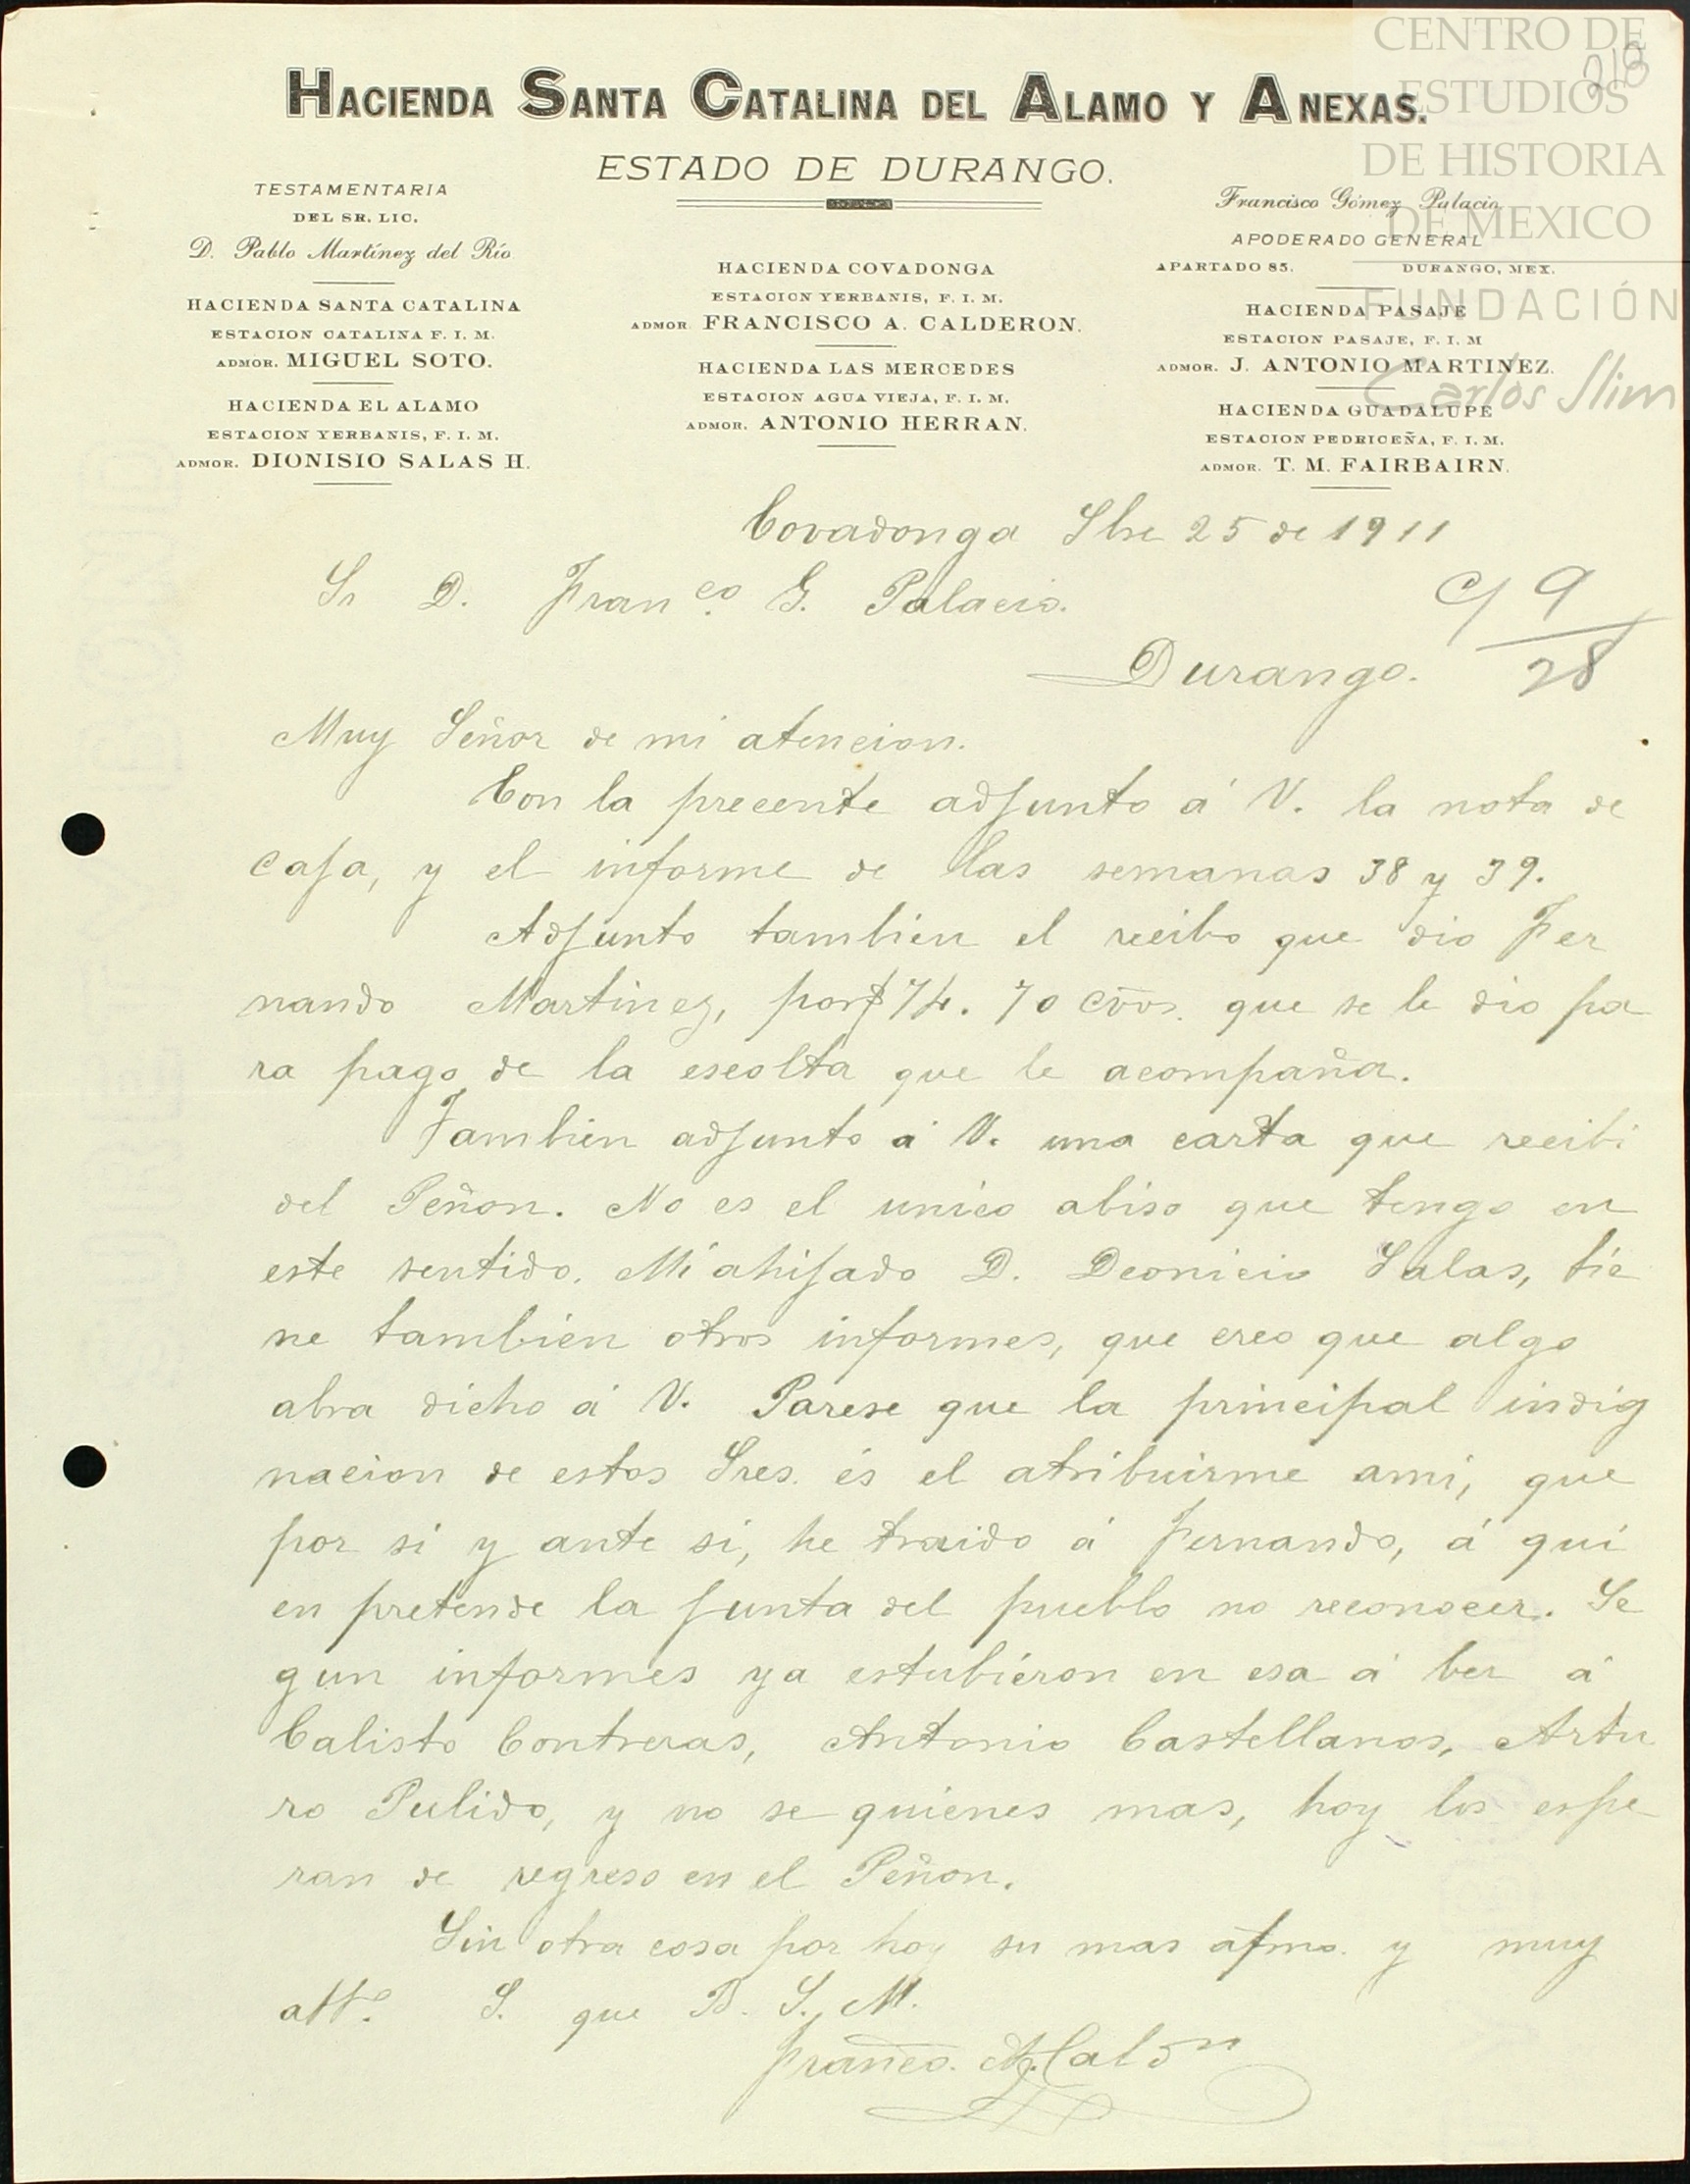 CENTRO DE
ESTUDIOS
DE HISTORIA
DE MEXICO
FUNDACIÓN
Carlos Slim
218
HACIENDA SANTA CATALINA DEL ALAMO Y ANEXAS.
ESTADO DE DURANGO.
TESTAMENTARIA
DEL SR. LIC.
D. Pablo Martínez del Río
HACIENDA SANTA CATALINA
ESTACION CATALINA F. I. M.
ADMOR. MIGUEL SOTO.
HACIENDA EL ALAMO
ESTACION YERBANIS, F. I. M.
ADMOR. DIONISIO SALAS H.
HACIENDA COVADONGA
ESTACION YERBANIS, F. I. M.
ADMOR. FRANCISCO A. CALDERON.
HACIENDA LAS MERCEDES
ESTACION AGUA VIEJA, F. I. M.
ADMOR. ANTONIO HERRAN.
Francisco Gómez Palacio
APODERADO GENERAL
APARTADO 85. DURANGO, MEX.
HACIENDA PASAJE
ESTACION PASAJE, F. I. M
ADMOR. J. ANTONIO MARTINEZ.
HACIENDA GUADALUPE
ESTACION PEDRICEÑA, F. I. M.
ADMOR. T. M. FAIRBAIRN.
Covadonga Sbre 25 de 1911
Sr D. Franco. G. Palacio.
c/ 9/28
Durango.
Muy Señor de mi atencion.
Con la precente adjunto á V. la nota de
caja, y el informe de las semanas 38 y 39.
Adjunto tambien el recibo que dio Fer
nando Martinez, por $74.70 cvos. que se le dio pa
ra pago de la escolta que le acompaña.
Tambien adjunto á V. una carta que recibi
del Peñon. No es el unico abiso que tengo en
este sentido. Mi ahijado D. Deonicio Salas, tie
ne tambien otros informes, que creo que algo
abra dicho á V. Parese que la principal indig
nacion de estos Sres. és el atribuirme ami, que
por si y ante si, he traido á Fernando, á qui
en pretende la junta del pueblo no reconocer. Se
gun informes ya estubieron en esa á ber á
Calisto Contreras, Antonio Castellanos, Artu
ro Pulido, y no se quienes mas, hoy los espe
ran de regreso en el Peñon.
Sin otra cosa por hoy su mas afmo. y muy
atto. S. que B. S. M.
Franco. A. Caldn